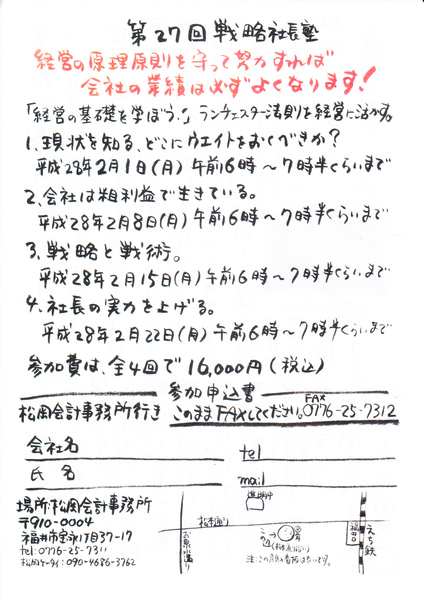 第27回戦略社長塾
経営の原理原則を守って努力すれば
会社の業績は必ずよくなります!
「経営の基礎を学ぼう!」ランチェスター法則を経営に活かす。
1.現状を知る、どこにウエイトをおくべきか?
平成28年2月1日(月)午前6時〜7時半くらいまで
2.会社は粗利益で生きている。
平成28年2月8日(月)午前6時〜7時半くらいまで
3.戦略と戦術。
平成28年2月15日(月)午前6時〜7時半くらいまで
4.社長の実力を上げる。
平成28年2月22日(月)午前6時〜7時半くらいまで
参加費は、全4回で16,000円(税込)
参加申込書
松岡会計事務所行き このままFAXしてください。FAX 0776-25-7312
会社名 tel
氏名 mail
場所:松岡会計事務所
〒910-0004
福井市宝永1丁目37-17
tel:0776-25-7311
松岡ケータイ:090-4686-3762
進明中
松本通り
お泉水通り
ココ
福田口
えち鉄